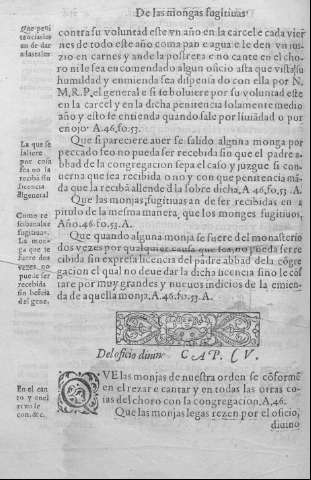 De las mongas fugitiuas
Que peni
tencias se
an de dar
a las tales
contra su voluntad este vn año en la carcel e cada vier
nes de todo este año coma pan e agua e le den vn iui-
zio en carnes y ande la postrera e no cante en el cho-
ro ni le sea encomendado algun oficio asta que vista su
humildad y enmienda sea dispensado con ella por N.
M. R. P. el general e si se boluiere por su voluntad este
en la carcel y en la dicha penitencia solamente medio
año y esto se entienda quando sale por liuiãdad o por
enojo A.46.fo.53.
La que se
saliere
por cosa
fea no la
reciba sin
licencia
del general
Que si pareciere auer se salido alguna monga por
peccado feo no pueda ser recebida sin que el padre a-
bbad de la congregacion sepa el caso y juzgue si con-
uerna que sea recibida o no y con que penitencia mã-
da que la reciba allende dela sobre dicha, A.46,fo,53 .A.
Como re
Que las monjas,fugitiuas an de ser recebidas en a
pitulo de la mesma manera, que los monges fugitiuos,
Año.46.fo.53.A.
fugitiua.
La mon-
ga que se
fuere dos
vezes, no
puede ser
recebida
sin licẽcia
del gene.
Que quando alguna monja se fuere del monasterio
dos vezes por qualquier causa que sea,no pueda ser re
cibida sin expresa licencia del padre abbad dela cõgre
gacion el qual no deue dar la dicha licencia sino le cõs
tare por muy grandes y nueuos indicios de la emien-
da de aquella monja. A.46.fo.53.A.
Del oficio diuino CAP. LV.
En el can
to y en el
rezo se
con.&c.
QVE las monjas de nuestra orden se cõformẽ
en el rezar e cantar y en todas las otras co-
sas del choro con la congregacion, A,46.
Que las monjas legas rezen por el oficio,
diuino